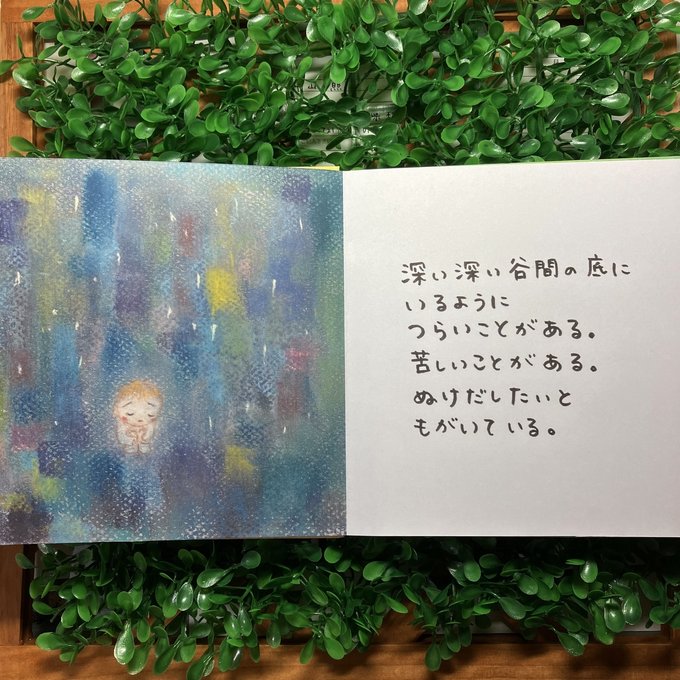 深い深い谷間の底に
いるように
つらいことがある。
苦しいことがある。
ぬけだしたいと
もがいている。